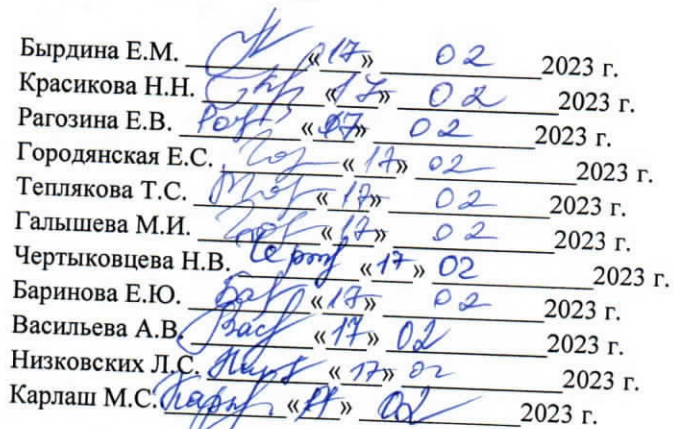 Бырдина Е.М. «17» 02 2023 г.
Красикова Н.Н. «17» 02 2023 г.
Рагозина Е.В. «17» 02 2023 г.
Городянская Е.С. «17» 02 2023 г.
Теплякова Т.С. «17» 02 2023 г.
Галышева М.И. «17» 02 2023 г.
Чертыковцева Н.В. «17» 02 2023 г.
Баринова Е.Ю. «17» 02 2023 г.
Васильева А.В. «17» 02 2023 г.
Низковских Л.С. «17» 02 2023 г.
Карлаш М.С. «17» 02 2023 г.